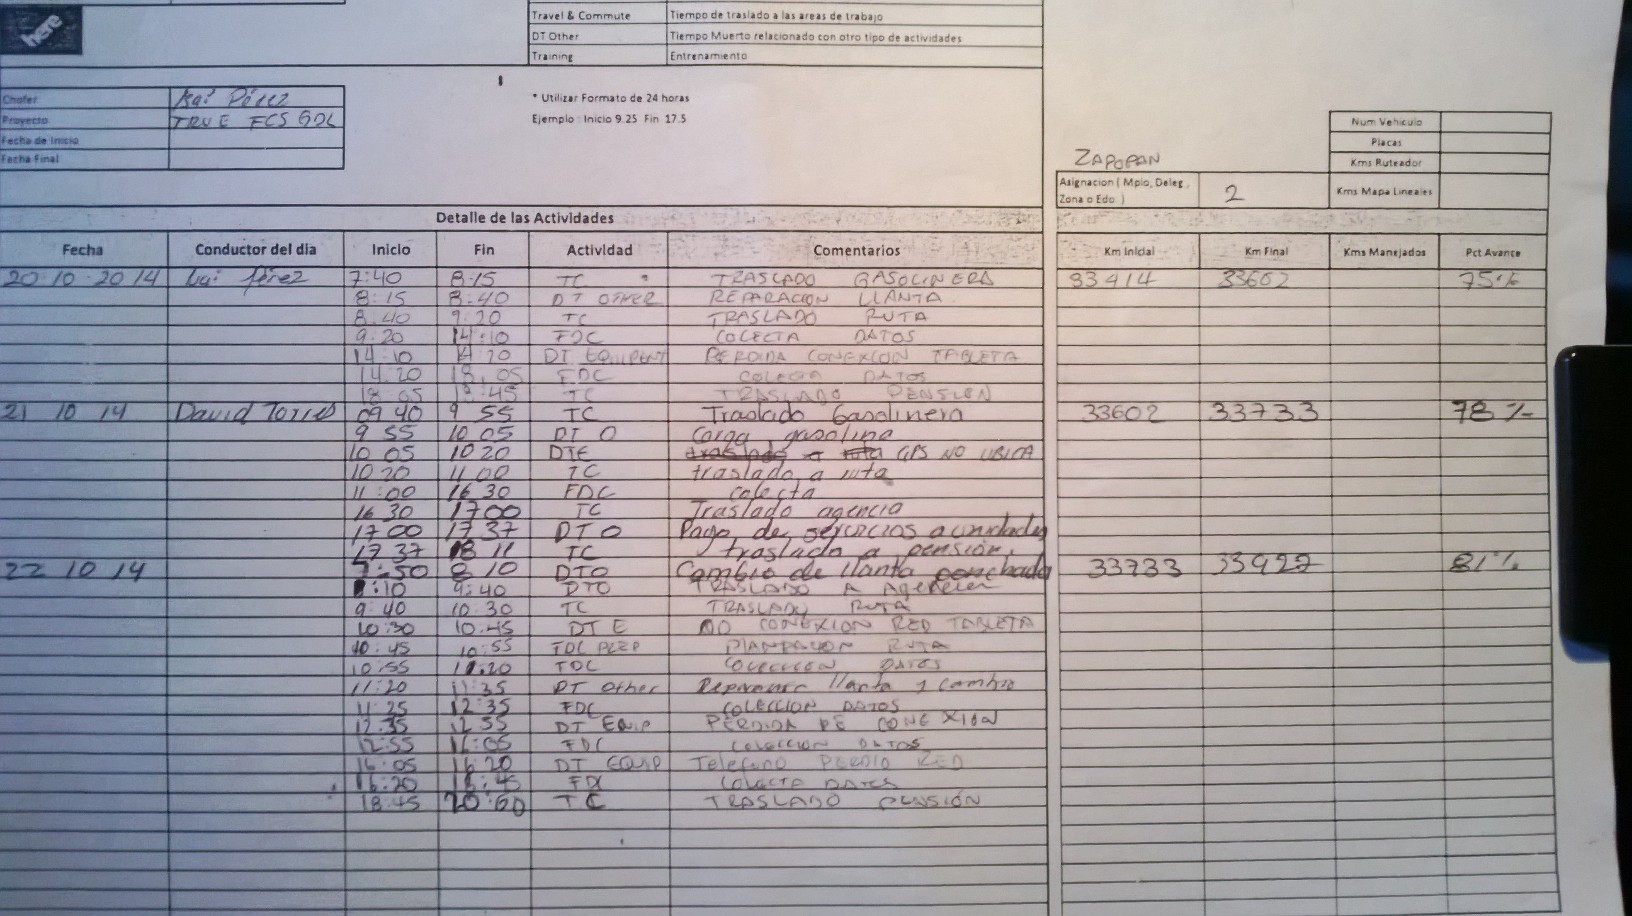 here
Travel & Commute Tiempo de traslado a las areas de trabajo
DT Other Tiempo Muerto relacionado con otro tipo de actividades
Training Entrenamiento
Chofer Isaí Pérez
Proyecto TRUE FCS GDL
Fecha de Inicio
Fecha Final
* Utilizar Formato de 24 horas
Ejemplo : Inicio 9.25 Fin 17.5
Num Vehiculo
Placas
Kms Ruteador
Kms Mapa Lineales
ZAPOPAN
Asignacion ( Mpio, Deleg., Zona o Edo. ) 2
Detalle de las Actividades
Fecha Conductor del dia Inicio Fin Actividad Comentarios Km Inicial Km Final Kms Manejados Pct Avance
20 10 2014 Isaí Pérez 7:40 8:15 TC TRASLADO GASOLINERA 33414 33602 75%
8:15 8:40 DT OTHER REPARACION LLANTA
8:40 9:20 TC TRASLADO RUTA
9:20 14:10 FDC COLECTA DATOS
14:10 14:20 DT EQUIPENT PERDIDA CONEXION TABLETA
14:20 18:05 FDC COLECTA DATOS
18:05 18:45 TC TRASLADO PENSION
21 10 14 David Torres 09 40 9 55 TC Traslado Gasolinera 33602 33733 78%
9 55 10 05 DT O Carga gasolina
10 05 10 20 DTE traslado a ruta GPS NO UBICA
10 20 11 00 TC traslado a ruta
11:00 16 30 FDC colecta
16 30 17 00 TC Traslado agencia
17 00 17 37 DT O Pago de servicios a unidades
17 37 18 11 TC traslado a pensión.
22 10 14 7:50 8 10 DTO Cambio de llanta ponchada 33733 33927 81%
8:10 9:40 DTO TRASLADO A Agencia
9:40 10:30 TC TRASLADO RUTA
10:30 10:45 DT E NO CONEXION RED TABLETA
10:45 10:55 PLANEACION RUTA
10:55 11:20 COLECCION DATOS
11:20 11:35 DT Other llanta y cambio
11:25 12:35 FDC COLECCION DATOS
12:35 12 55 DT EQUIP PERDIDA DE CONEXION
12:55 16:05 FDC COLECCION DATOS
16:05 16:20 DT EQUIP Telefono PERDIO RED
16:20 18:45 FDC COLECTA DATOS
18:45 20:00 TC TRASLADO PENSIÓN